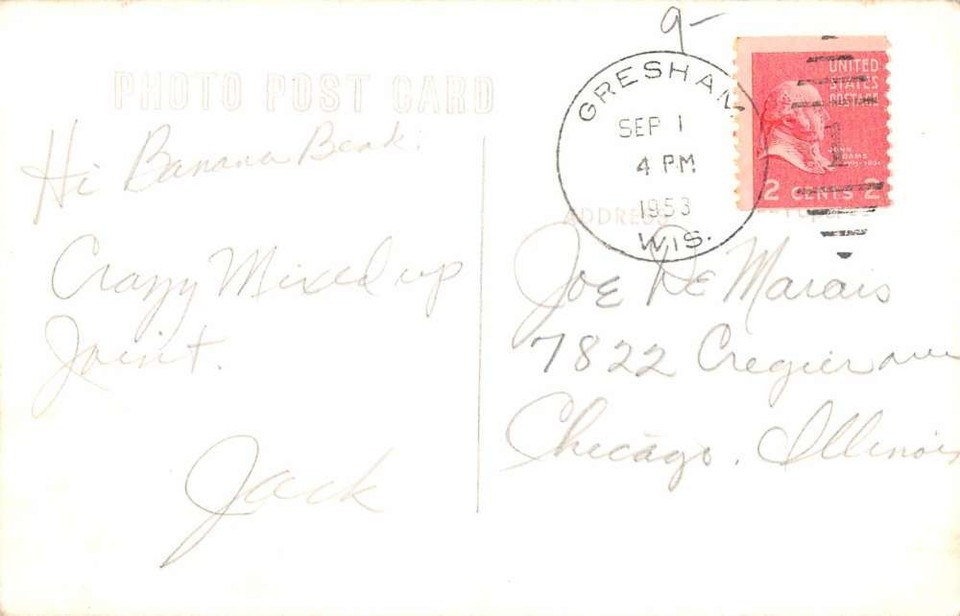 9-
PHOTO POST CARD
GRESHAM
SEP 1
4 PM
1953
WIS.
UNITED
STATES
POSTAGE
JOHN
ADAMS
2 CENTS 2
Hi Banana Beak!
Crazy Mixed up
Joint.
Jack
ADDRESS
Joe De Marais
7822 Cregier ave
Chicago, Illinois